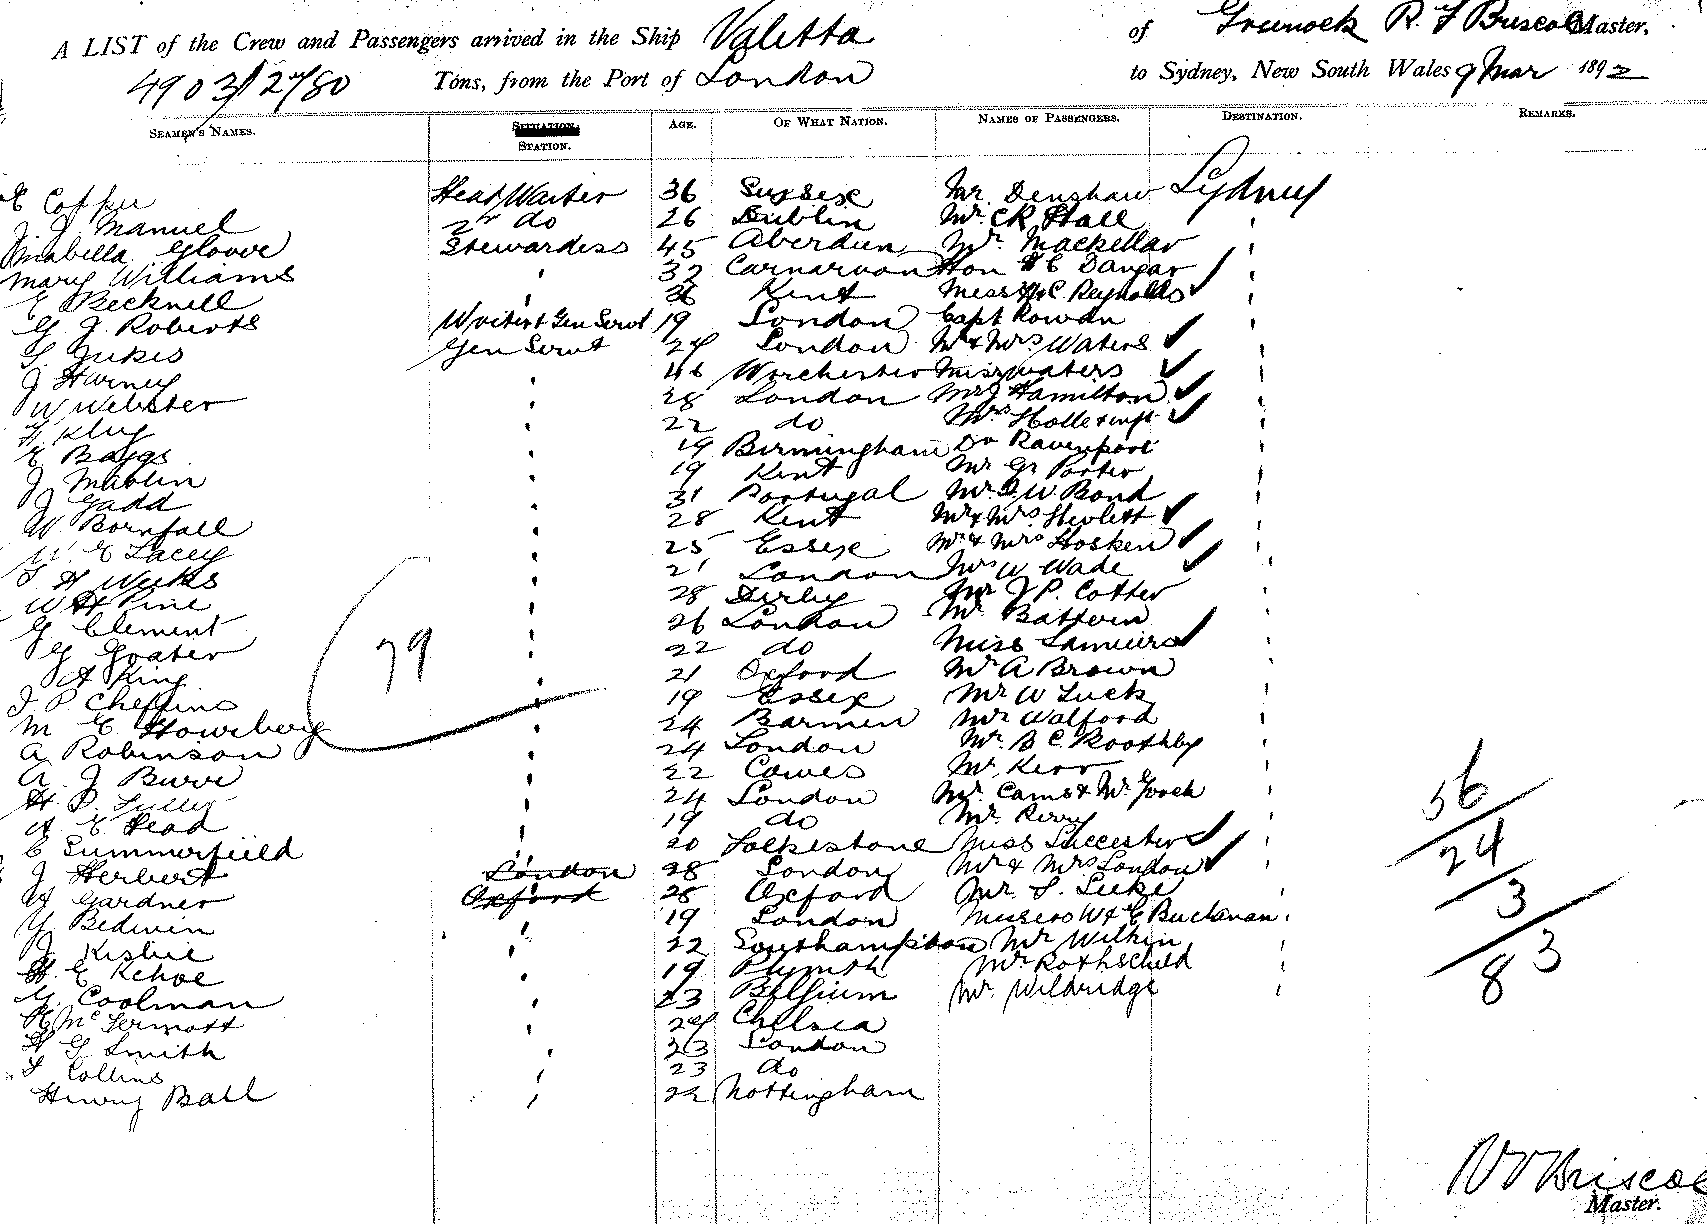 A LIST of the Crew and Passengers arrived in the Ship Valetta of Greenock R. F Briscoe Master,
4903 Tons, from the Port of London to Sydney, New South Wales 9 Mar 1892
SEAMEN'S NAMES. STATION. AGE. OF WHAT NATION. NAMES OF PASSENGERS. DESTINATION. REMARKS.
Head Waiter 36 Sussex Mr. Denshaw Sydney
J. Manuel 2nd do 26 Dublin Mr. C R Hall
Glover Stewardess 45 Aberdeen Mr. Mackellar
Mary Williams 32 Carnarvon Hon H C Dangar
E Becknell Kent Reynolds
G. J. Roberts Writer & Gen Servt 19 London Capt Rowan
G Jukes Gen Servt 24 London Mr & Mrs Waters
J Harney 46 Worchester Miss Waters
W Webster 28 London Mrs J Hamilton
H King 22 do Mrs
E Baggs 19 Birmingham Dr Ravenport
J Mablin 19 Kent Mr G. Porter
J Gadd 31 Portugal Mr. J. W. Bond
W Bornfall 28 Kent Mr & Mrs Hewlett
W. E Lacey 25 Essex Mr & Mrs Hosken
H Weeks 21 London Mrs W Wade
W H Pine 28 Derby Mr J P. Cotter
G Clement 26 London Mr. Battern
G Goater 22 do Miss
79
A King 21 Oxford Mr A Brown
J. P. Cheffins 19 Essex Mr W Luck
M E 24 Barmen Mr Walford
A Robinson 24 London Mr. B C. Boothby
A. J Burr 22 Cowes Mr. Kerr
H. P. Tully 24 London Mr. Cams & Mr. Gooch
56
A E Head 19 do Mr. Perry
C Summerfield 20 Folkestone Miss
24
J Herbert London 28 London Mr & Mrs London
H Gardner Oxford 28 Oxford Mr. S. Luke
3
G Bedwin 19 London Messrs W & E Buchanan
J Kisbie 22 Southampton Mr Wilkin
83
H. E Kehoe 19 Plymth Mr Rothschild
G. Coolman 23 Belgium Mr. Wildridge
Mc Dermott 24 Chelsea
H G Smith 23 London
F Collins 23 do
Henry Ball 22 Nottingham
Briscoe
Master.